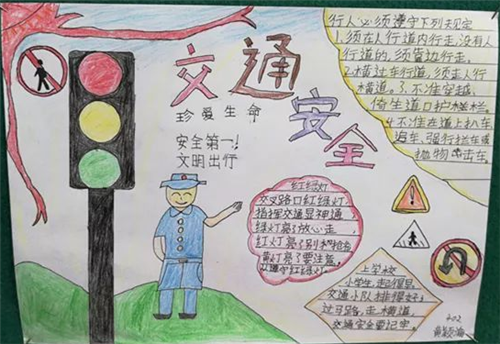 交通
安全
珍爱生命
安全第一!
文明出行
行人必须遵守下列规定
1.须在人行道内行走,没有人
行道的,须靠边行走。
2.横过车行道,须走人行
横道。3.不准穿越、
倚坐道口护栏
4.不准在道上扒车
追车、强行拦车或
抛物击车。
红绿灯
交叉路口红绿灯
指挥交通显神通
绿灯亮了放心走
红灯亮了别
黄灯亮了要注意
红绿灯
上学校
小学生,起得早,
交通小队排得好;
过马路,走横道,
交通安全要记牢。
402